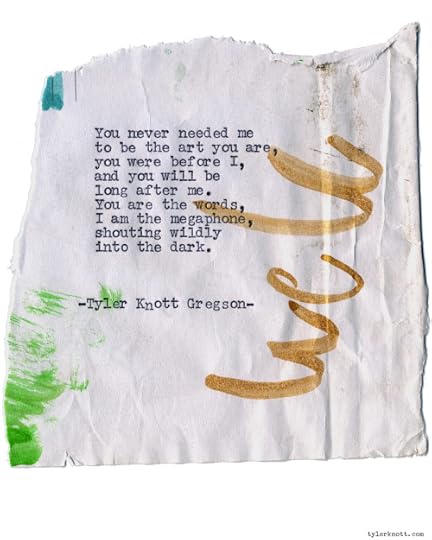 You never needed me
to be the art you are,
you were before I,
and you will be
long after me.
You are the words,
I am the megaphone,
shouting wildly
into the dark.
-Tyler Knott Gregson-
well
tylerknott.com